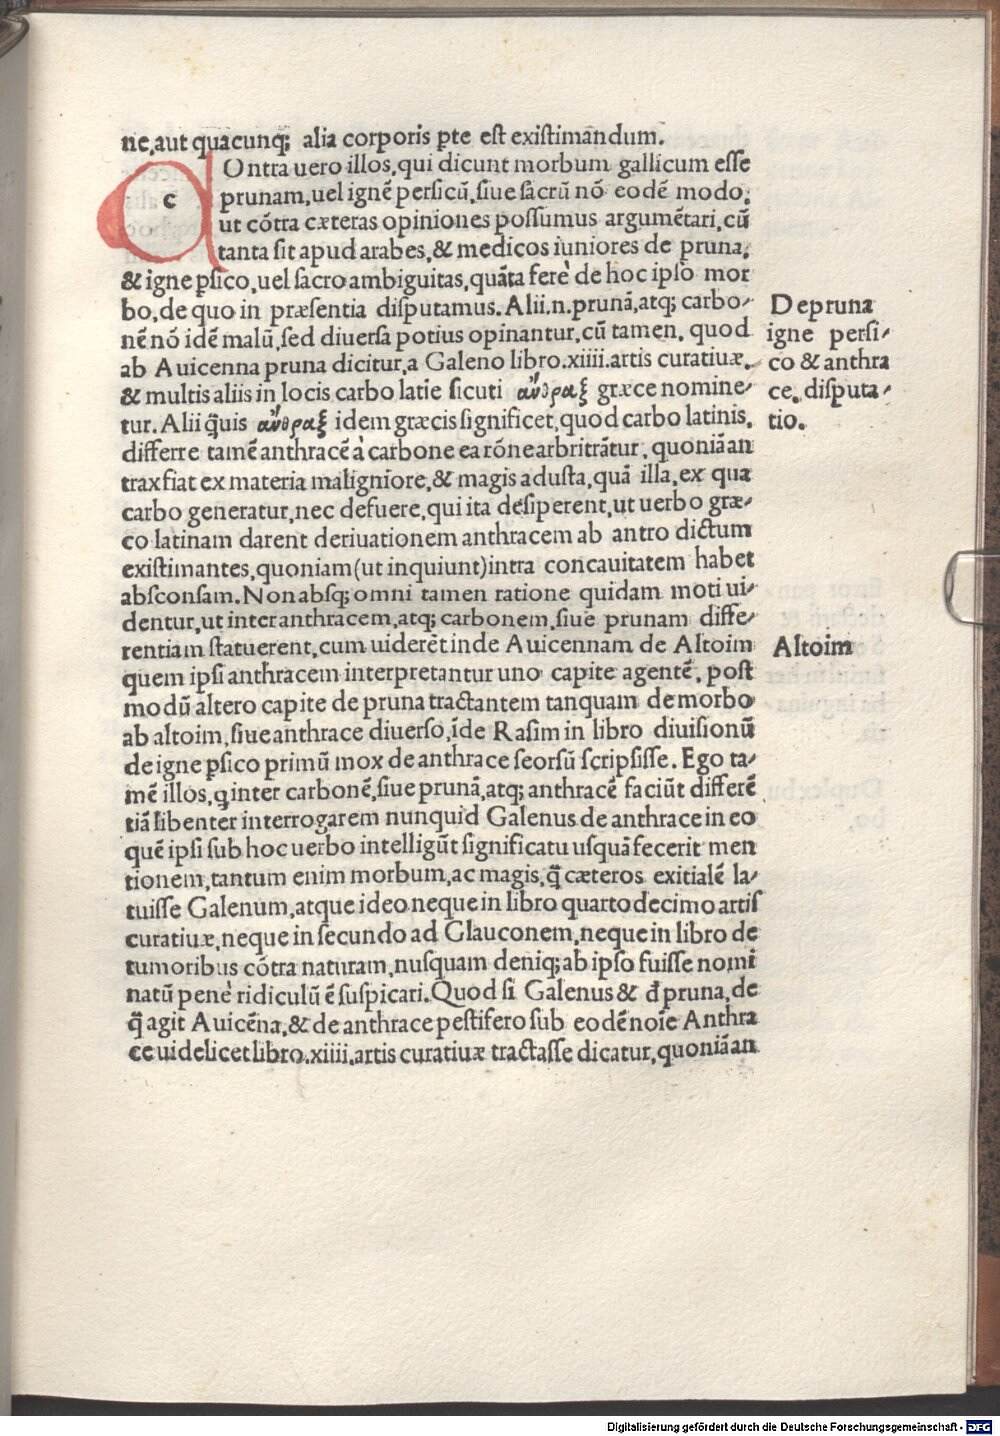 ne,aut quacunq; alia corporis pte est existimandum.
COntra uero illos,qui dicunt morbum gallicum esse
prunam,uel ignē persicū,siue sacrū nō eodē modo,
ut cōtra cæteras opiniones possumus argumētari,cū
tanta sit apud arabes,& medicos iuniores de pruna,
& igne psico,uel sacro ambiguitas,quāta ferè de hoc ipso mor
bo,de quo in præsentia disputamus.Alii.n.prunā,atq; carbo-
nē nō idē malū,sed diuersa potius opinantur,cū tamen, quod
ab Auicenna pruna dicitur,a Galeno libro.xiiii.artis curatiuæ,
& multis aliis in locis carbo latie sicuti ἄνθραξ græce nomine-
tur. Alii q̄uis ἄνθραξ idem græcis significet,quod carbo latinis,
differre tamē anthracē à carbone ea rōne arbritrātur, quoniā an
trax fiat ex materia maligniore,& magis adusta,quā illa,ex qua
carbo generatur,nec defuere,qui ita desiperent,ut uerbo græ-
co latinam darent deriuationem anthracem ab antro dictum
existimantes,quoniam(ut inquiunt)intra concauitatem habet
absconsam. Non absq; omni tamen ratione quidam moti ui-
dentur,ut inter anthracem,atq; carbonem,siue prunam diffe-
rentiam statuerent,cum uiderēt inde Auicennam de Altoim
quem ipsi anthracem interpretantur uno capite agentē, post
modū altero capite de pruna tractantem tanquam de morbo
ab altoim,siue anthrace diuerso,īde Rasim in libro diuisionū
de igne psico primū mox de anthrace seorsū scripsisse. Ego ta-
mē illos,q inter carbonē,siue prunā,atq; anthracē faciūt differē
tiā libenter interrogarem nunquid Galenus de anthrace in eo
quē ipsi sub hoc uerbo intelligūt significatu usquā fecerit men
tionem,tantum enim morbum,ac magis,q̄ cæteros exitialē la-
tuisse Galenum,atque ideo neque in libro quartodecimo artis
curatiuæ,neque in secundo ad Glauconem,neque in libro de
tumoribus cōtra naturam,nusquam deniq; ab ipso fuisse nomi
natū penè ridiculū ē suspicari.Quod si Galenus & đ pruna,de
q̄ agit Auicēna,& de anthrace pestifero sub eodē noīe Anthra
ce uidelicet libro.xiiii.artis curatiuæ tractasse dicatur,quoniā an
De pruna
igne persi-
co & anthra
ce, disputa-
tio.
Altoim
Digitalisierung gefördert durch die Deutsche Forschungsgemeinschaft - DFG